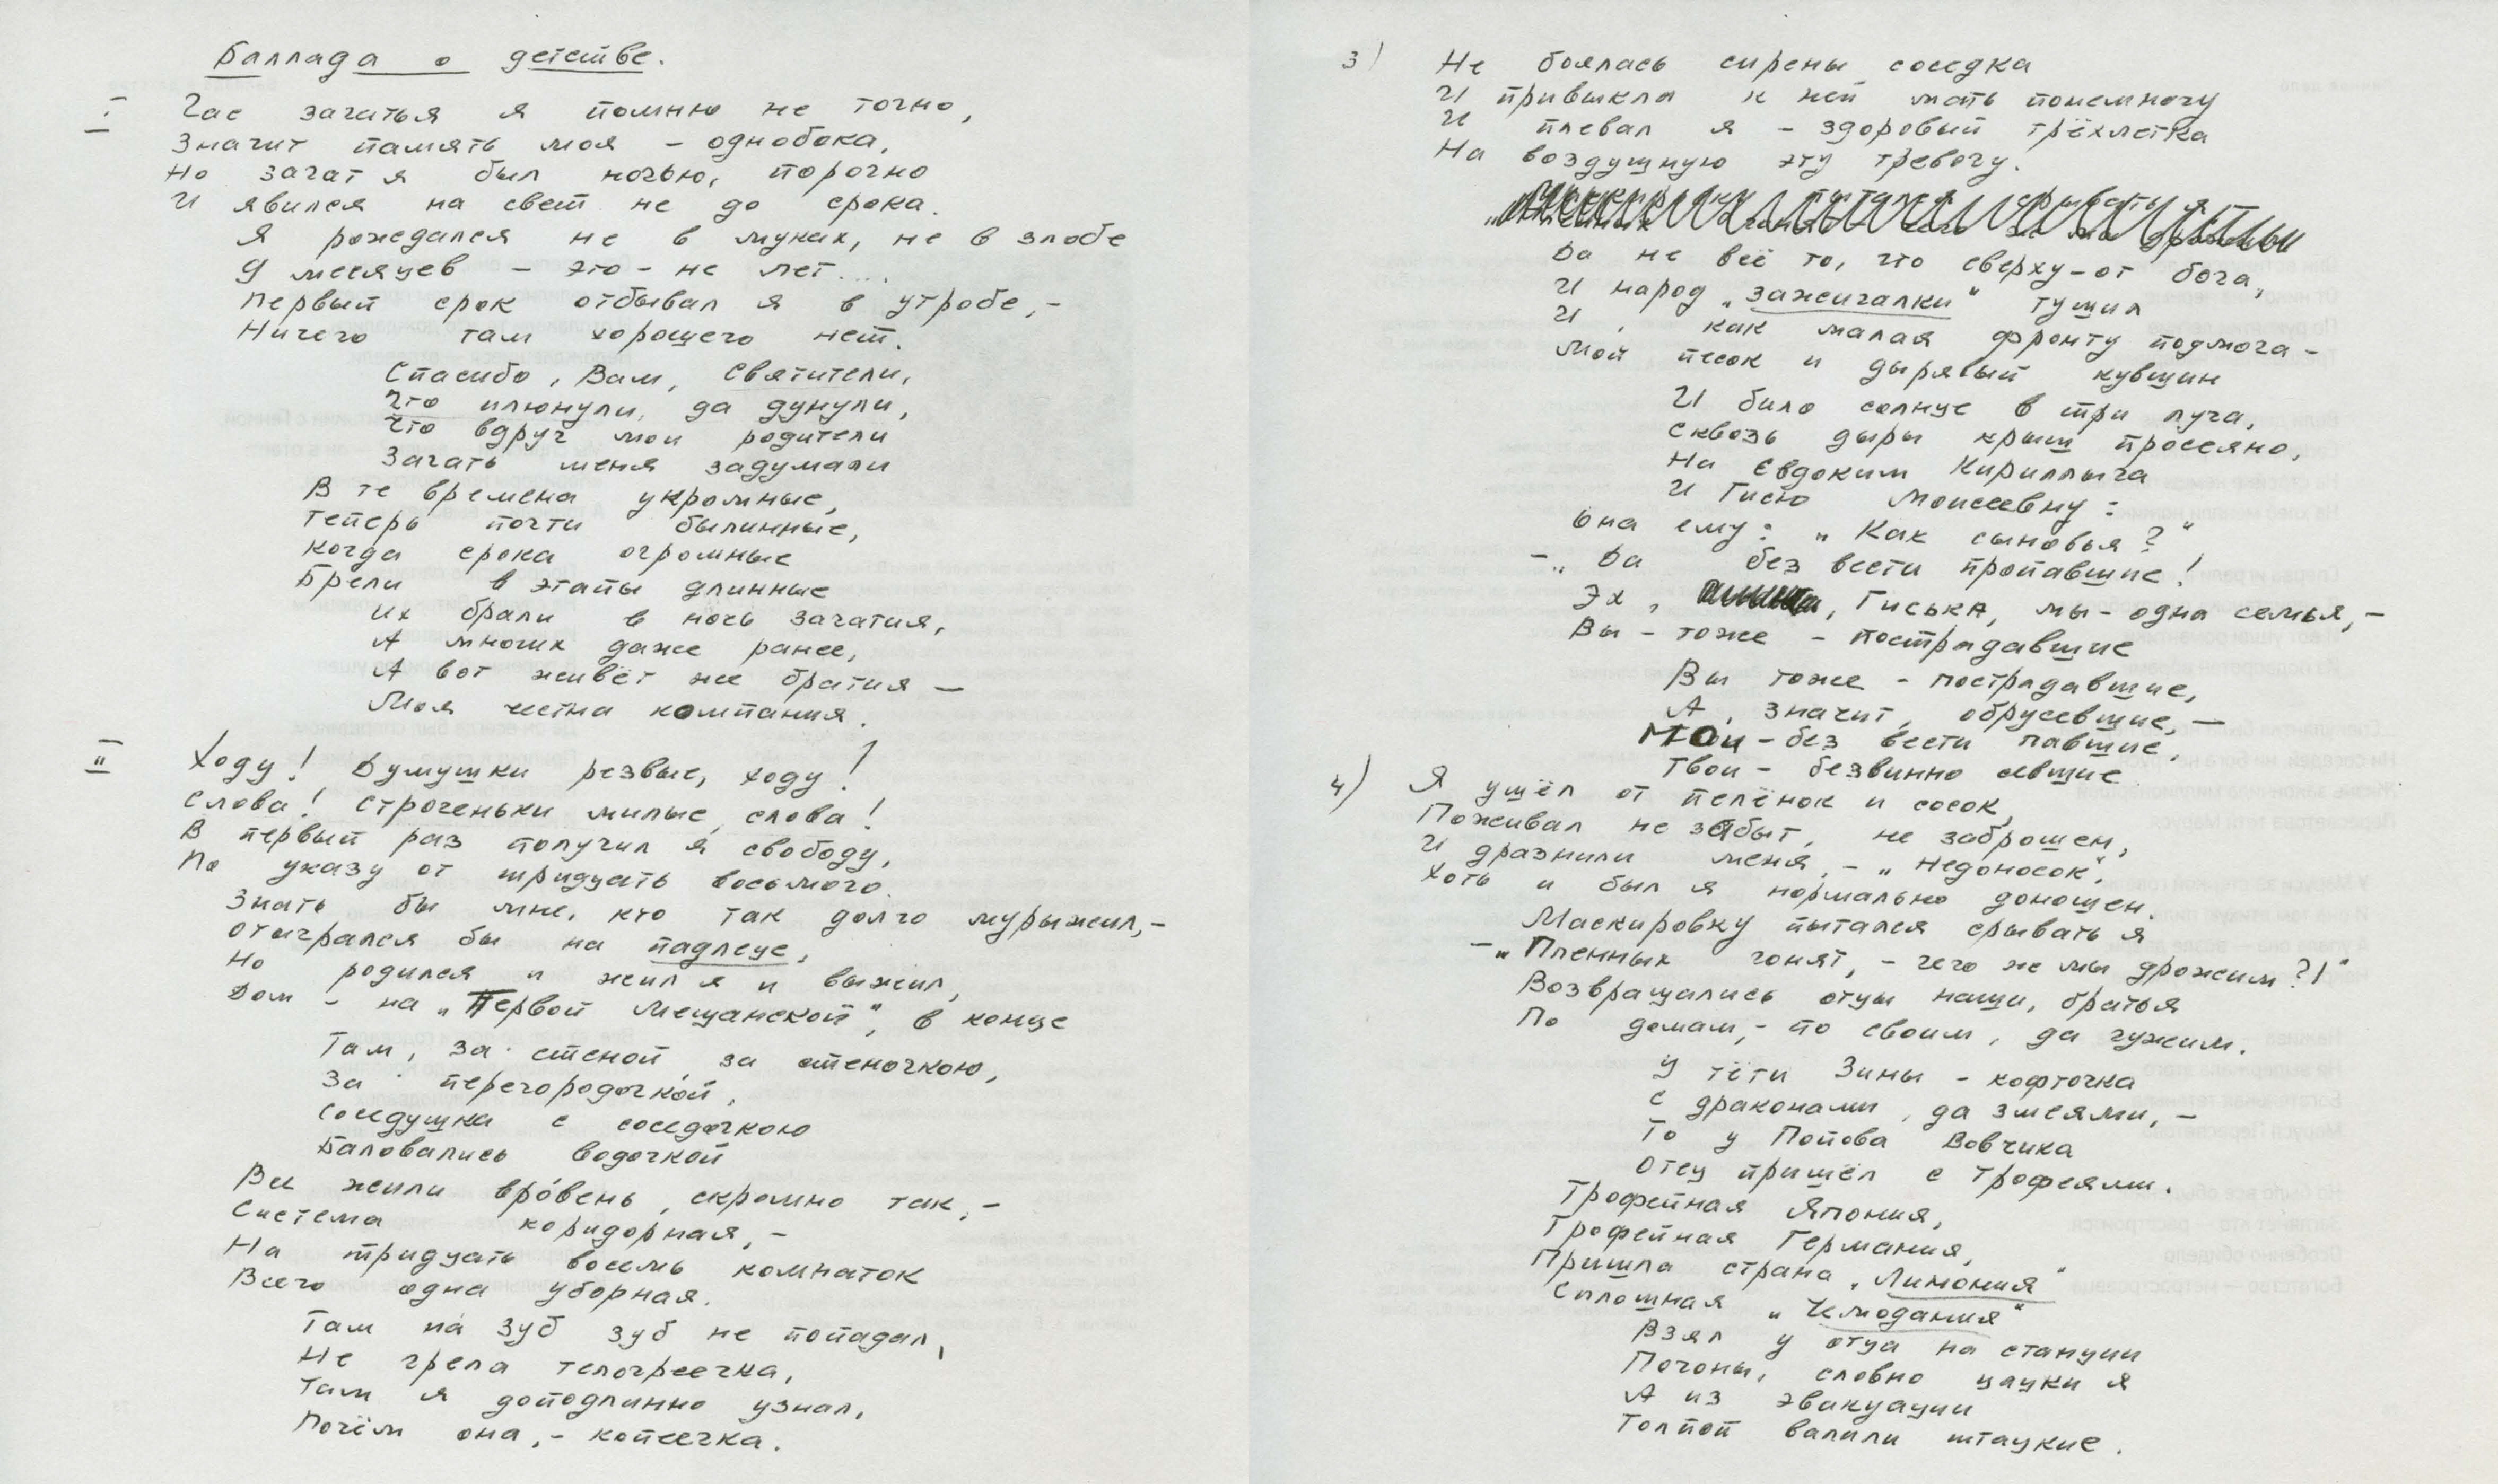 Баллада о детстве.
I Час зачатья я помню не точно,
Значит память моя – однобока,
Но зачат я был ночью, порочно
И явился на свет не до срока.
Я рождался не в муках, не в злобе
9 месяцев – это – не лет....
Первый срок отбывал я в утробе, –
Ничего там хорошего нет.
Спасибо, Вам, святители,
Что плюнули, да дунули,
Что вдруг мои родители
Зачать меня задумали
В те времена укромные,
Теперь почти былинные,
Когда срока огромные
Брели в этапы длинные
Их брали в ночь зачатия,
А многих даже ранее,
А вот живёт же братия –
Моя честна компания.
II Ходу! Думушки резвые, ходу!
Слова! Строченьки милые, слова!
В первый раз получил я свободу,
По указу от тридцать восьмого.
Знать бы мне, кто так долго мурыжил, –
Отыгрался бы на подлеце,
Но родился и жил я и выжил,
Дом – на „Первой Мещанской", в конце
Там, за стеной, за стеночкою,
За перегородочкой,
Соседушка с соседочкою
Баловались водочкой
Все жили вро́вень, скромно так, –
Система коридорная, –
На тридцать восемь комнаток
Всего одна уборная.
Там на́ зуб зуб не попадал,
Не грела телогреечка,
Там я доподлинно узнал,
Почём она, – копеечка.
3) Не боялась сирены соседка
И привыкла к ней мать понемногу
И плевал я – здоровый трёхлетка
На воздушную эту тревогу.
Да не всё то, что сверху – от бога,
И народ „зажигалки" тушил
И, как малая фронту подмога –
Мой песок и дырявый кувшин
И било солнце в три луча,
Сквозь дыры крыш просеяно,
На Евдоким Кириллыча
И Гисю Моисеевну:
Она ему: „Как сыновья?"
– „Да без вести пропавшие!
Эх, Гиська, мы – одна семья, –
Вы – тоже – пострадавшие
Вы тоже – пострадавшие,
А, значит, обрусевшие, –
Мои – без вести павшие,
Твои – безвинно севшие
4) Я ушёл от пелёнок и сосок,
Поживал не забыт, не заброшен,
И дразнили меня, – „Недоносок",
Хоть и был я нормально доношен.
Маскировку пытался срывать я
– „Пленных гонят, – чего же мы дрожим?!"
Возвращались отцы наши, братья
По домам, – по своим, да чужим.
У тёти Зины – кофточка
С драконами, да змеями, –
То у Попова Вовчика
Отец пришёл с трофеями.
Трофейная Япония,
Трофейная Германия,
Пришла страна „Лимония"
Сплошная „Чемодания"
Взял у отца на станции
Погоны, словно цацки я
А из эвакуации
Толпой валили штацкие.